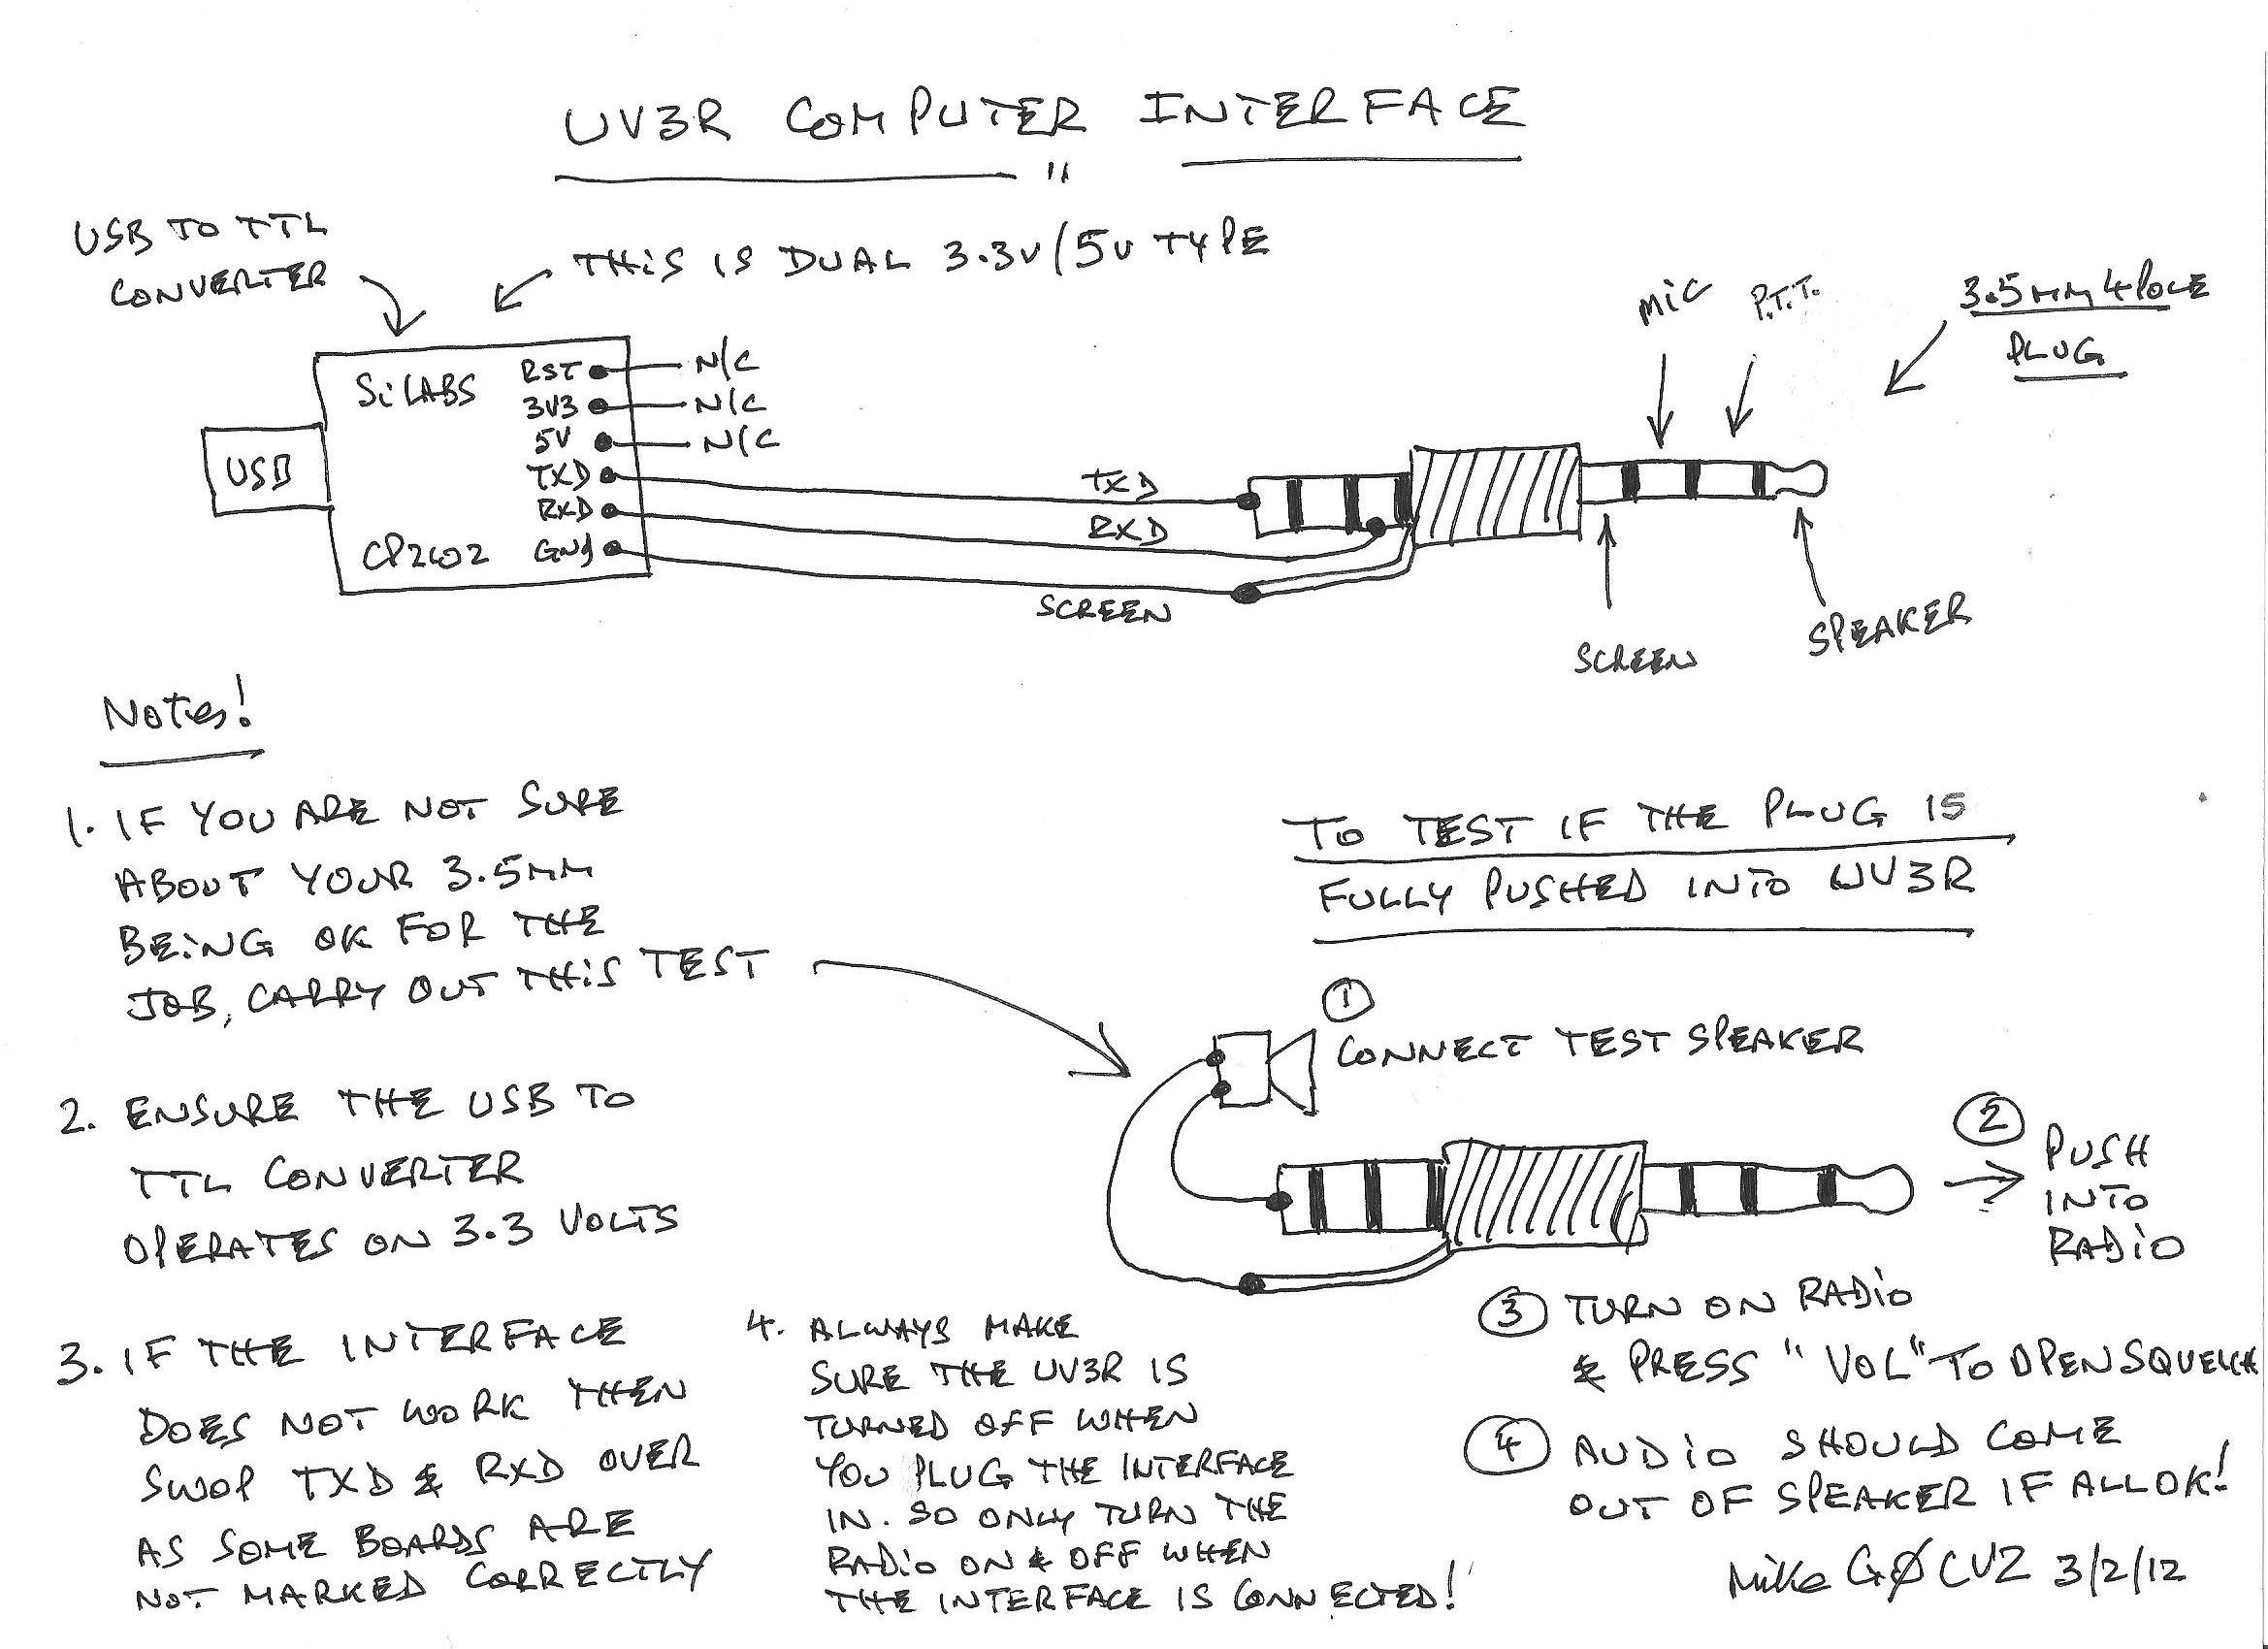 UV3R COMPUTER INTERFACE
"
USB TO TTL
CONVERTER
THIS IS DUAL 3.3V/5V TYPE
MIC
P.T.T.
3.5MM 4 POLE
PLUG
SiLABS
CP2102
USB
RST
N/C
3V3
N/C
5V
N/C
TXD
RXD
GND
TXD
RXD
SCREEN
SCREEN
SPEAKER
Notes!
1. IF YOU ARE NOT SURE
ABOUT YOUR 3.5MM
BEING OK FOR THE
JOB, CARRY OUT THIS TEST
2. ENSURE THE USB TO
TTL CONVERTER
OPERATES ON 3.3 VOLTS
3. IF THE INTERFACE
DOES NOT WORK THEN
SWOP TXD & RXD OVER
AS SOME BOARDS ARE
NOT MARKED CORRECTLY
4. ALWAYS MAKE
SURE THE UV3R IS
TURNED OFF WHEN
YOU PLUG THE INTERFACE
IN. SO ONLY TURN THE
RADIO ON & OFF WHEN
THE INTERFACE IS CONNECTED!
TO TEST IF THE PLUG IS
FULLY PUSHED INTO UV3R
1
CONNECT TEST SPEAKER
2
PUSH
INTO
RADIO
3 TURN ON RADIO
& PRESS "VOL" TO OPEN SQUELCH
4 AUDIO SHOULD COME
OUT OF SPEAKER IF ALL OK!
Mike GØCVZ 3/2/12